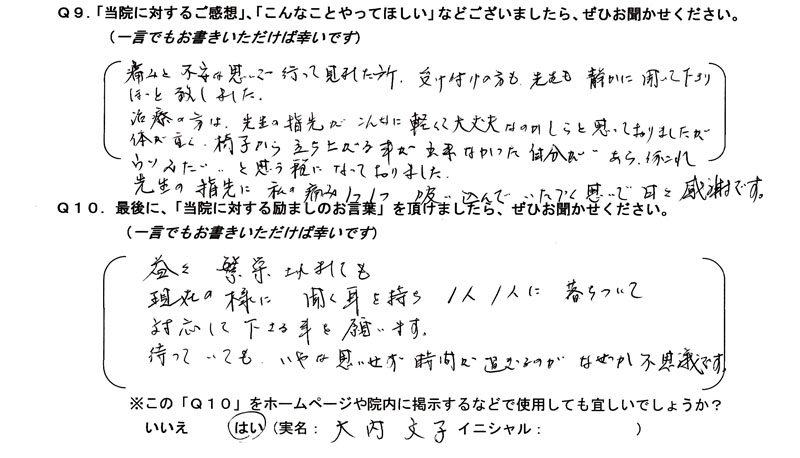 Q9．「当院に対するご感想」、「こんなことやってほしい」などございましたら、ぜひお聞かせください。
（一言でもお書きいただけば幸いです）
痛みと不安な思いで行って見れた所、受け付けの方も、先生も静かに聞いて下さり
ほっと致しました。
治療の方は、先生の指先がこんなに軽くて大丈夫なのかしらと思っておりましたが
体が重く、椅子から立ち上がる事が出来なかった自分が あら、
ウソみたい‥と思う程になっておりました。
先生の指先に私の痛み1つ1つ吸い込んでいただく思いで日々感謝です。
Q10．最後に、「当院に対する励ましのお言葉」を頂けましたら、ぜひお聞かせください。
（一言でもお書きいただけば幸いです）
益々繁栄されても
現在の様に 聞く耳を持ち 1人1人に 落ちついて
対応して下さる事を願います。
待っていても、いやな思いせず時間が過ぎるのがなぜか不思議です。
※この「Q10」をホームページや院内に掲示するなどで使用しても宜しいでしょうか？
いいえ はい（実名：大内 文子 イニシャル： ）